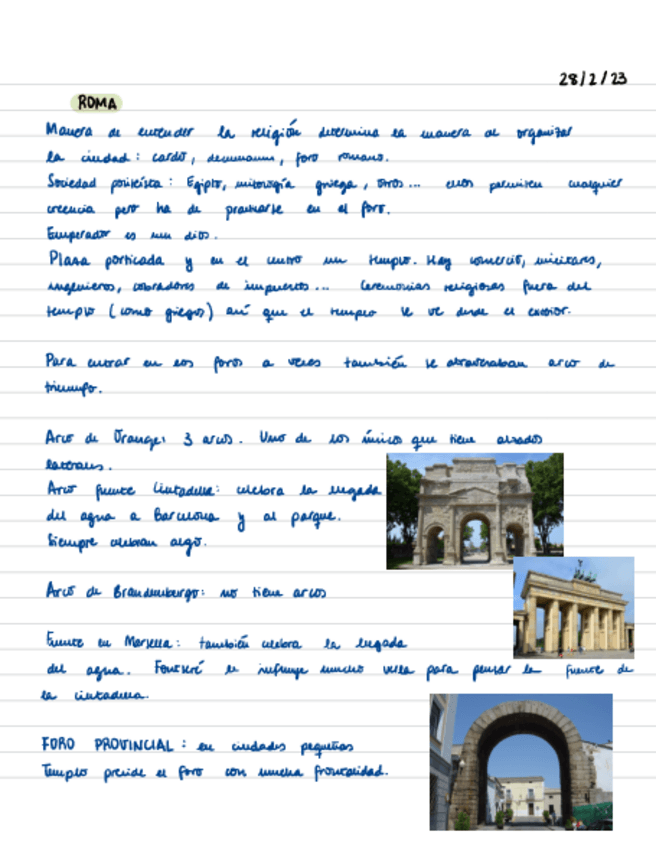 28/2/23
ROMA
Manera de entender la religión determina la manera de organizar
la ciudad: cardo, decumanum, foro romano.
Sociedad politeísta: Egipto, mitología griega, otros... ellos permiten cualquier
creencia pero ha de practicarse en el foro.
Emperador es un dios.
Plaza porticada y en el centro un templo. Hay comercio, militares,
ingenieros, cobradores de impuestos... Ceremonias religiosas fuera del
templo (como griegos) así que el templo se ve desde el exterior.
Para entrar en los foros a veces también se atravesaban arco de
triunfo.
Arco de Orange: 3 arcos. Uno de los únicos que tiene alzados
laterales.
Arco fuente Ciutadella: celebra la llegada
del agua a Barcelona y al parque.
Siempre celebran algo.
Arco de Brandemburgo: no tiene arcos
Fuente en Marsella: también celebra la llegada
del agua. Fontseré se infringe mucho verla para pensar la fuente de
la ciutadella.
FORO PROVINCIAL: en ciudades pequeñas
Templo preside el foro con mucha frontalidad.